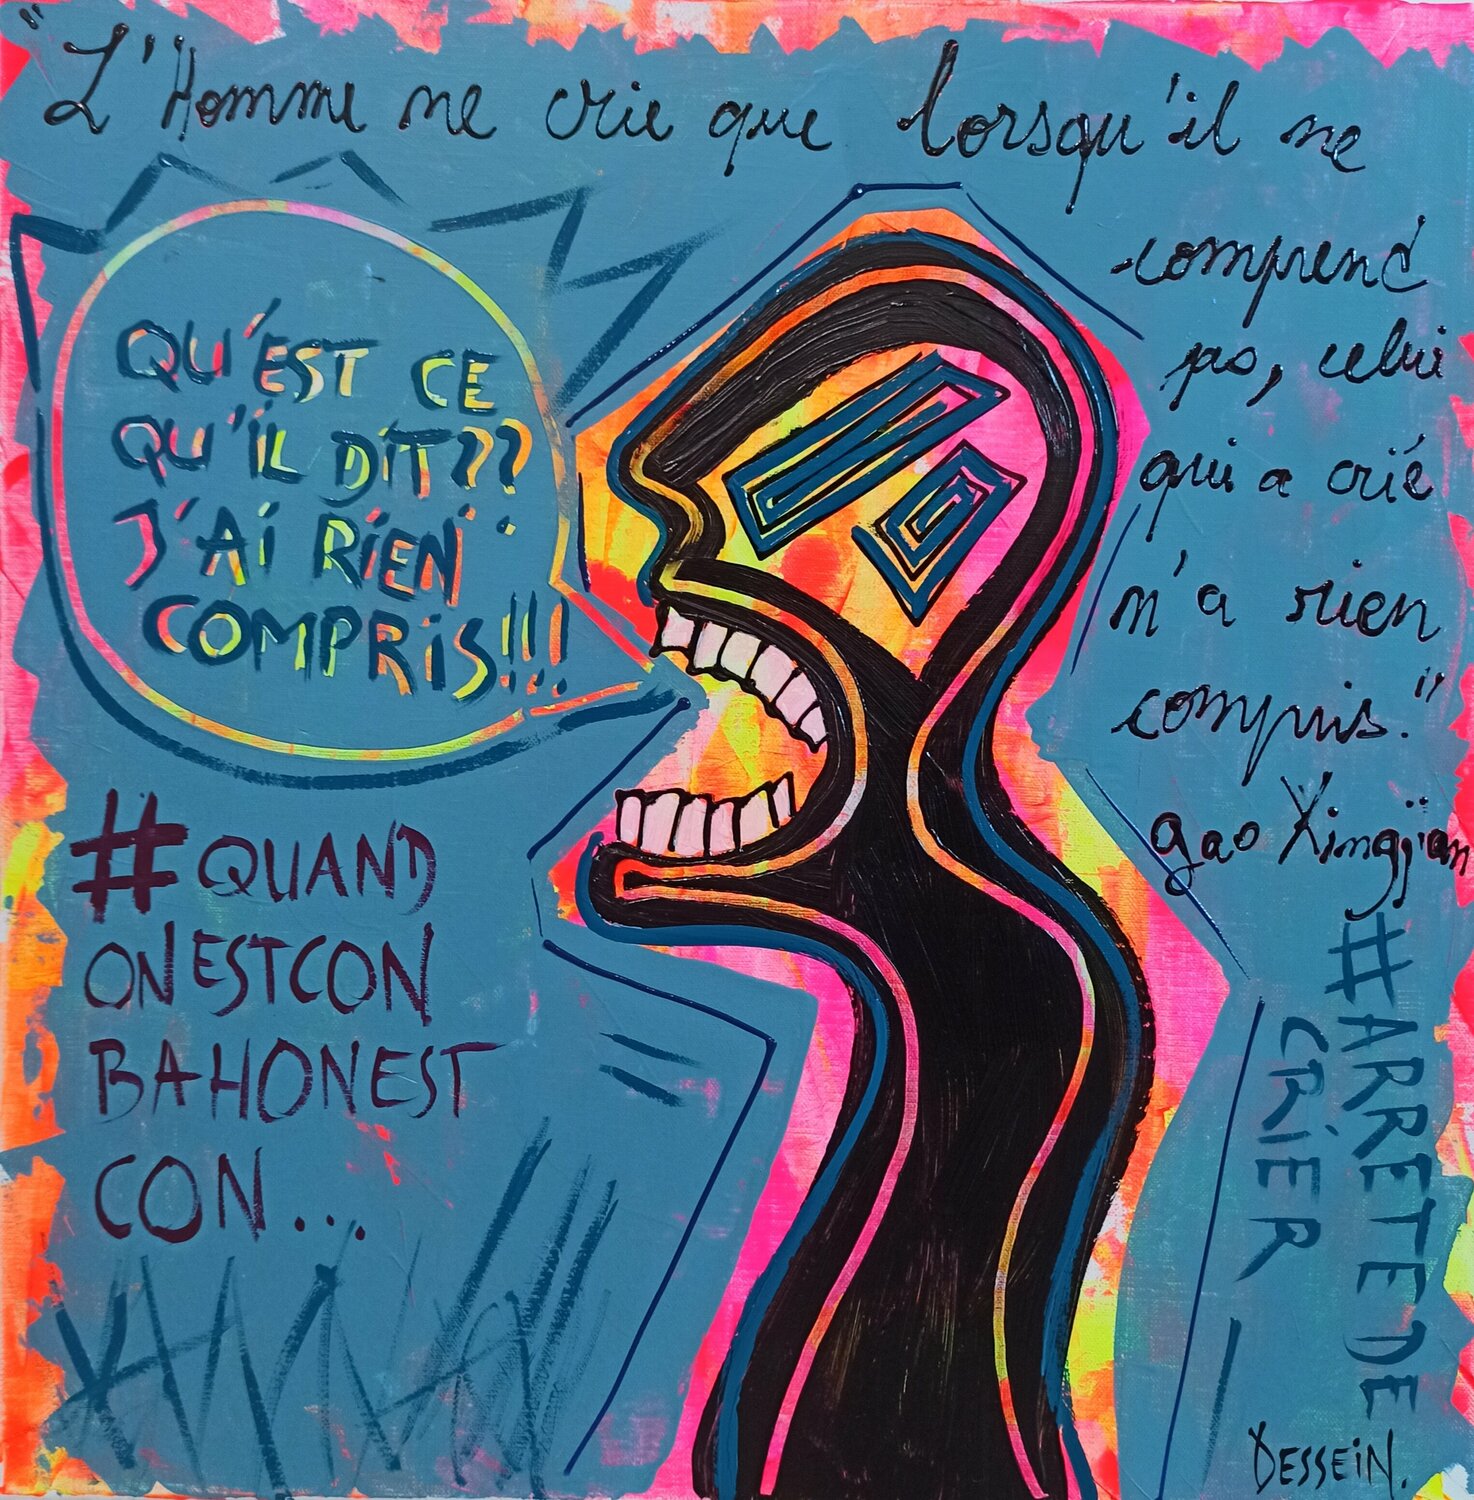 "L'Homme ne crie que lorsqu'il ne
comprend
pas, celui
qui a crié
n'a rien
compris."
gao Xingjian
QU'EST CE
QU'IL DIT??
J'AI RIEN
COMPRIS!!!
#QUAND
ONESTCON
BAHONEST
CON...
#ARRETEDE
CRIER
DESSEIN.